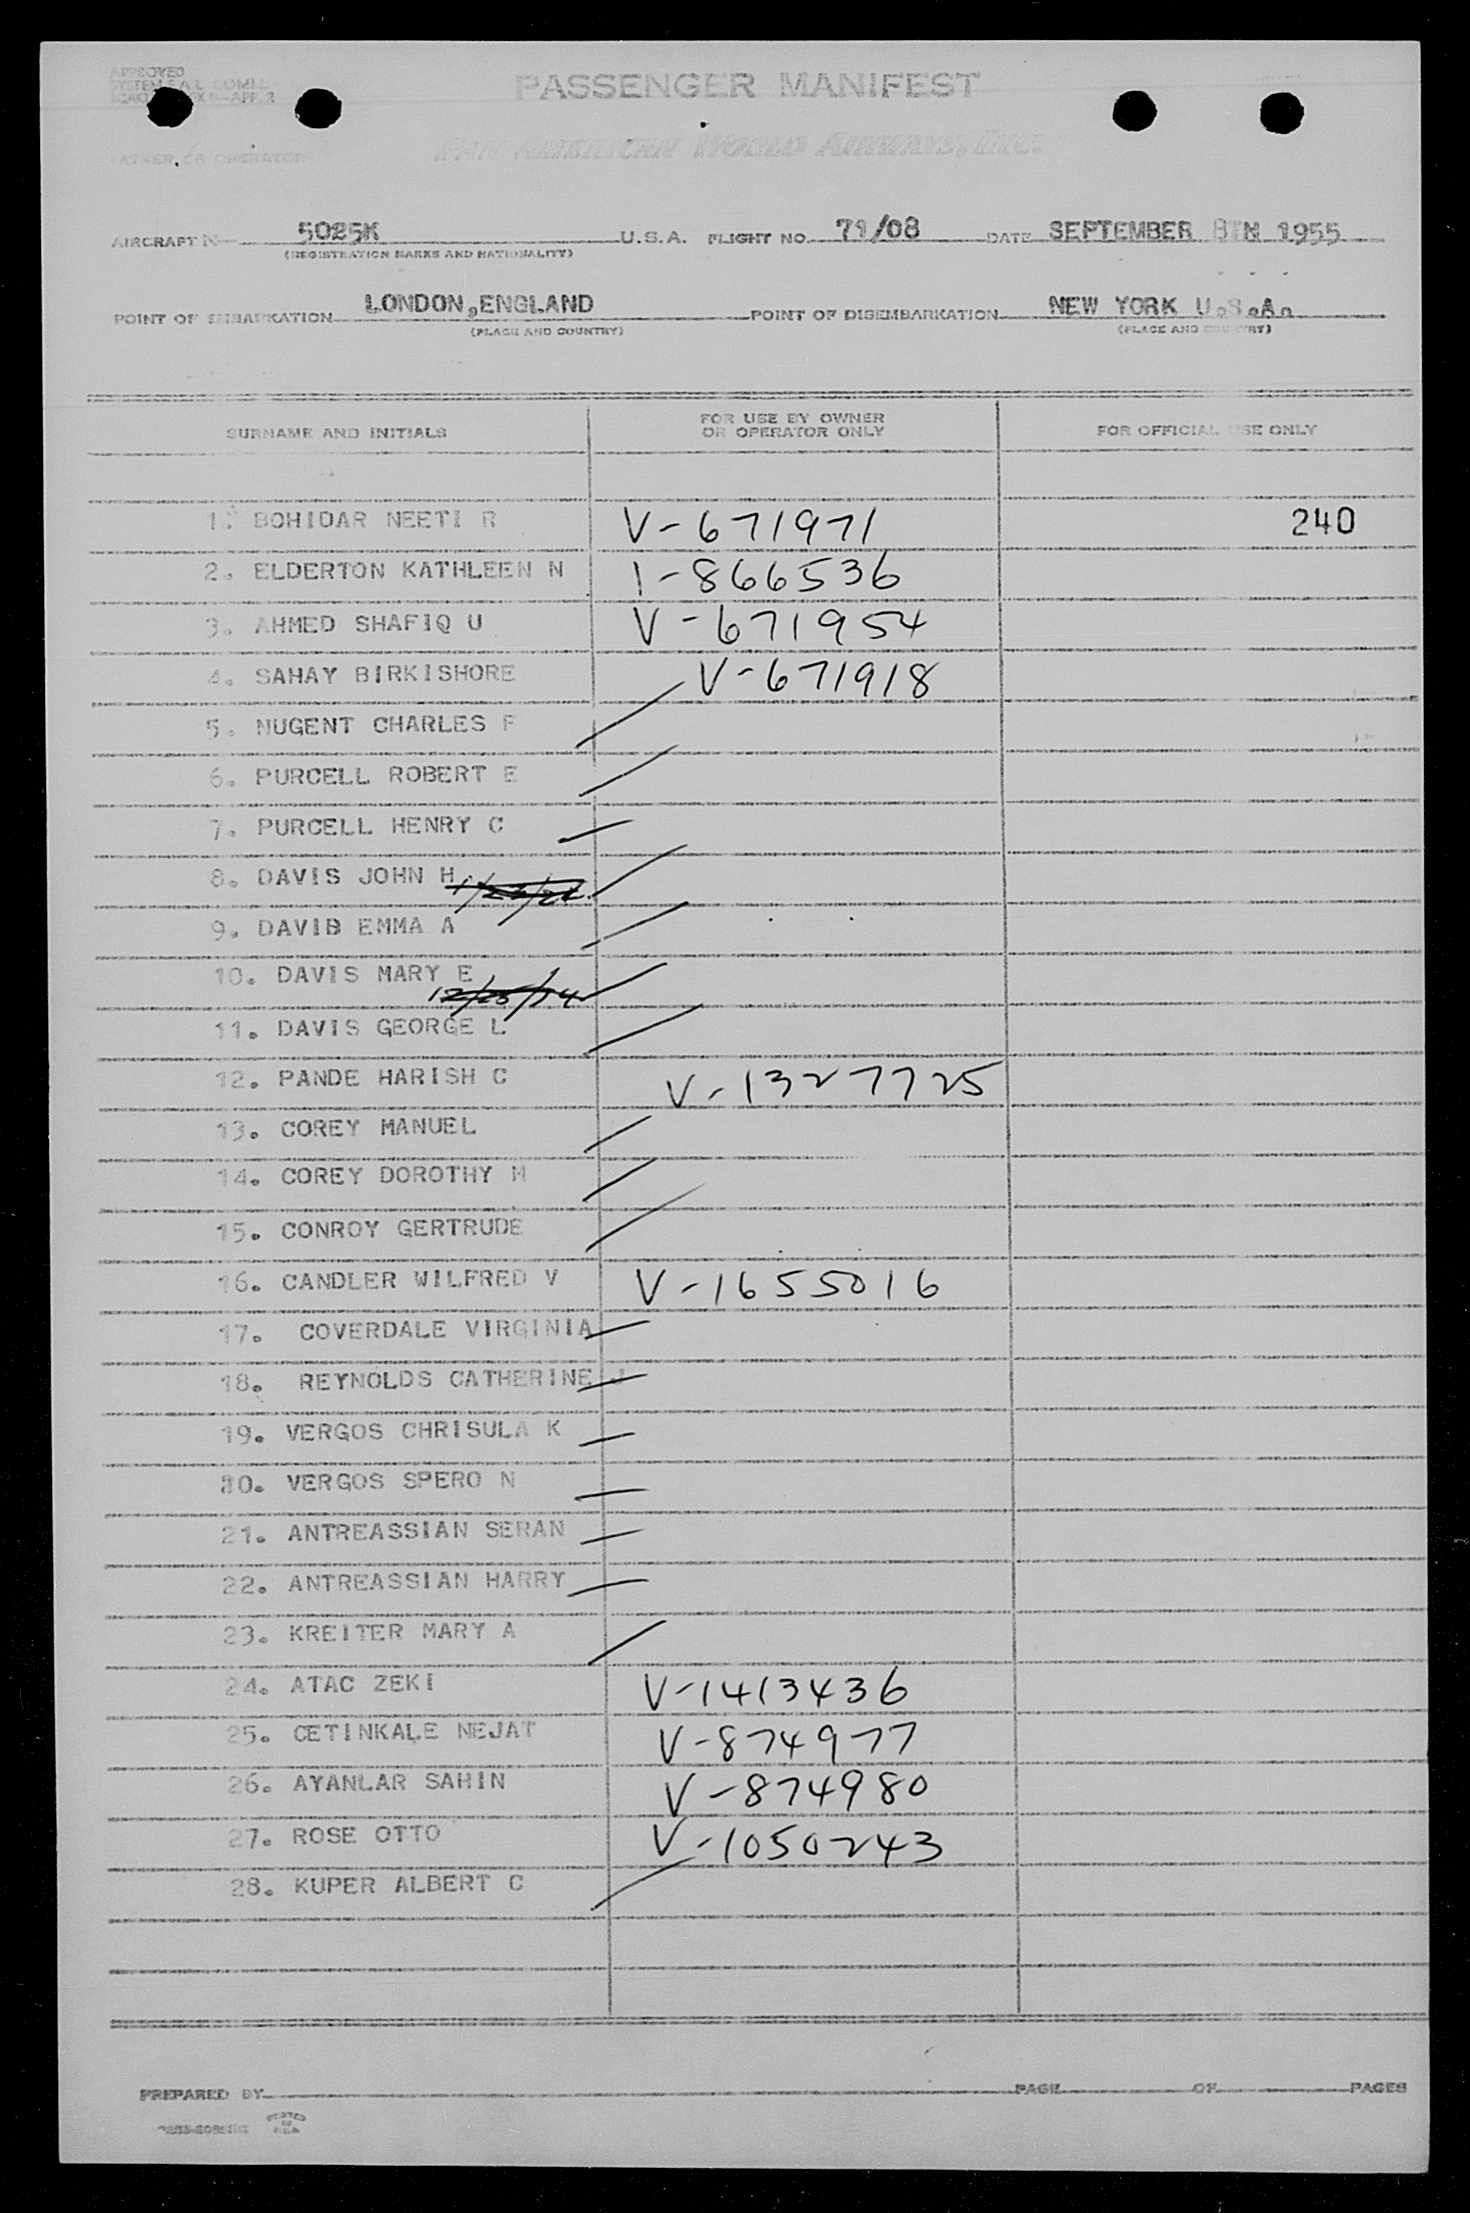 APPROVED
PASSENGER MANIFEST
PAN AMERICAN WORLD AIRWAYS, INC.
OWNER OR OPERATOR
AIRCRAFT N 5025K U.S.A. FLIGHT NO. 71/08 DATE SEPTEMBER 8TH 1955
(REGISTRATION MARKS AND NATIONALITY)
POINT OF EMBARKATION LONDON,ENGLAND POINT OF DISEMBARKATION NEW YORK U.S.A.
(PLACE AND COUNTRY) (PLACE AND COUNTRY)
SURNAME AND INITIALS FOR USE BY OWNER OR OPERATOR ONLY FOR OFFICIAL USE ONLY
1. BOHIDAR NEETI R V-671971 240
2. ELDERTON KATHLEEN N 1-866536
3. AHMED SHAFIQ U V-671954
4. SAHAY BIRKISHORE V-671918
5. NUGENT CHARLES F
6. PURCELL ROBERT E
7. PURCELL HENRY C
8. DAVIS JOHN H
9. DAVIB EMMA A
10. DAVIS MARY E
12/25/54
11. DAVIS GEORGE L
12. PANDE HARISH C V-1327725
13. COREY MANUEL
14. COREY DOROTHY M
15. CONROY GERTRUDE
16. CANDLER WILFRED V V-1655016
17. COVERDALE VIRGINIA
18. REYNOLDS CATHERINE J
19. VERGOS CHRISULA K
20. VERGOS SPERO N
21. ANTREASSIAN SERAN
22. ANTREASSIAN HARRY
23. KREITER MARY A
24. ATAC ZEKI V-1413436
25. CETINKALE NEJAT V-874977
26. AYANLAR SAHIN V-874980
27. ROSE OTTO V-1050243
28. KUPER ALBERT C
PREPARED BY PAGE OF PAGES